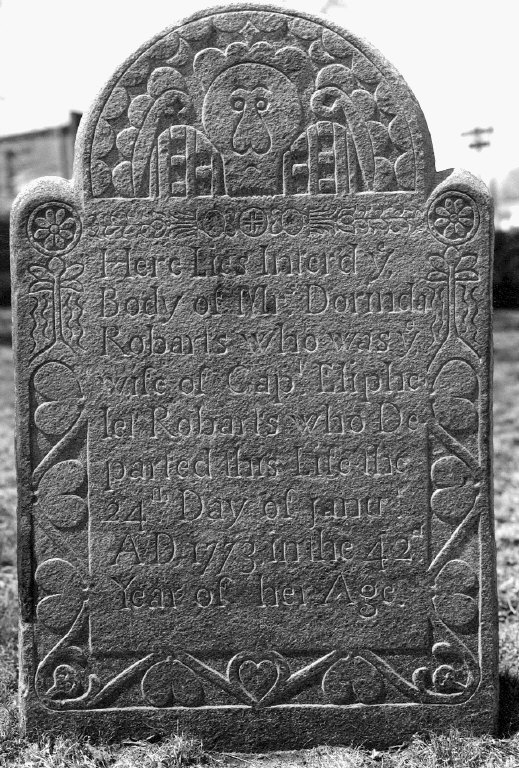 Here Lies Inter'd yᵉ
Body of Mʳˢ Dorinda
Robarts who was yᵉ
wife of Capᵗ Eliphe
let Robarts who De
parted this Life the
24ᵗʰ Day of Janurʸ
A.D. 1773 in the 42ᵈ
Year of her Age.